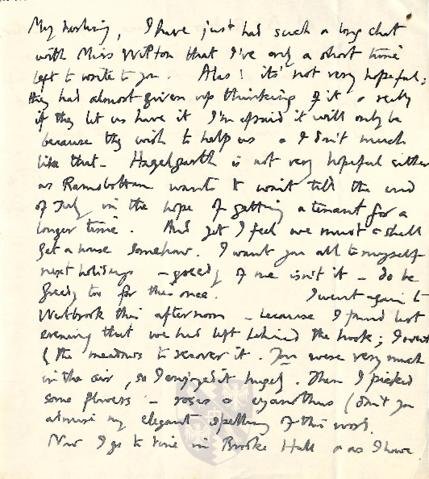 My darling, I have just had such a long chat
with Miss Wilton that I've only a short time
left to write to you. Alas! its' not very hopeful;
they had almost given up thinking of it & really
if they let us have it I'm afraid it will only be
because they wish to help us & I don't much
like that – Hazelgarth is not very hopeful either
as Ramsbottam wants to wait till the end
of July in the hope of getting a tenant for a
longer time. And yet I feel we must & shall
get a house somehow. I want you all to myself
next holidays – greedy of me isn't it – do be
greedy too for this once. I went again to
this afternoon – because I found last
evening that we had left behind the book; I went
to the meadows to recover it. You were very much
in the air, so I enjoyed it hugely. Then I picked
some flowers – roses & cyanothus (don't you
admire my elegant spelling of this word.
Now I go to dine in Brooke Hall & as I have